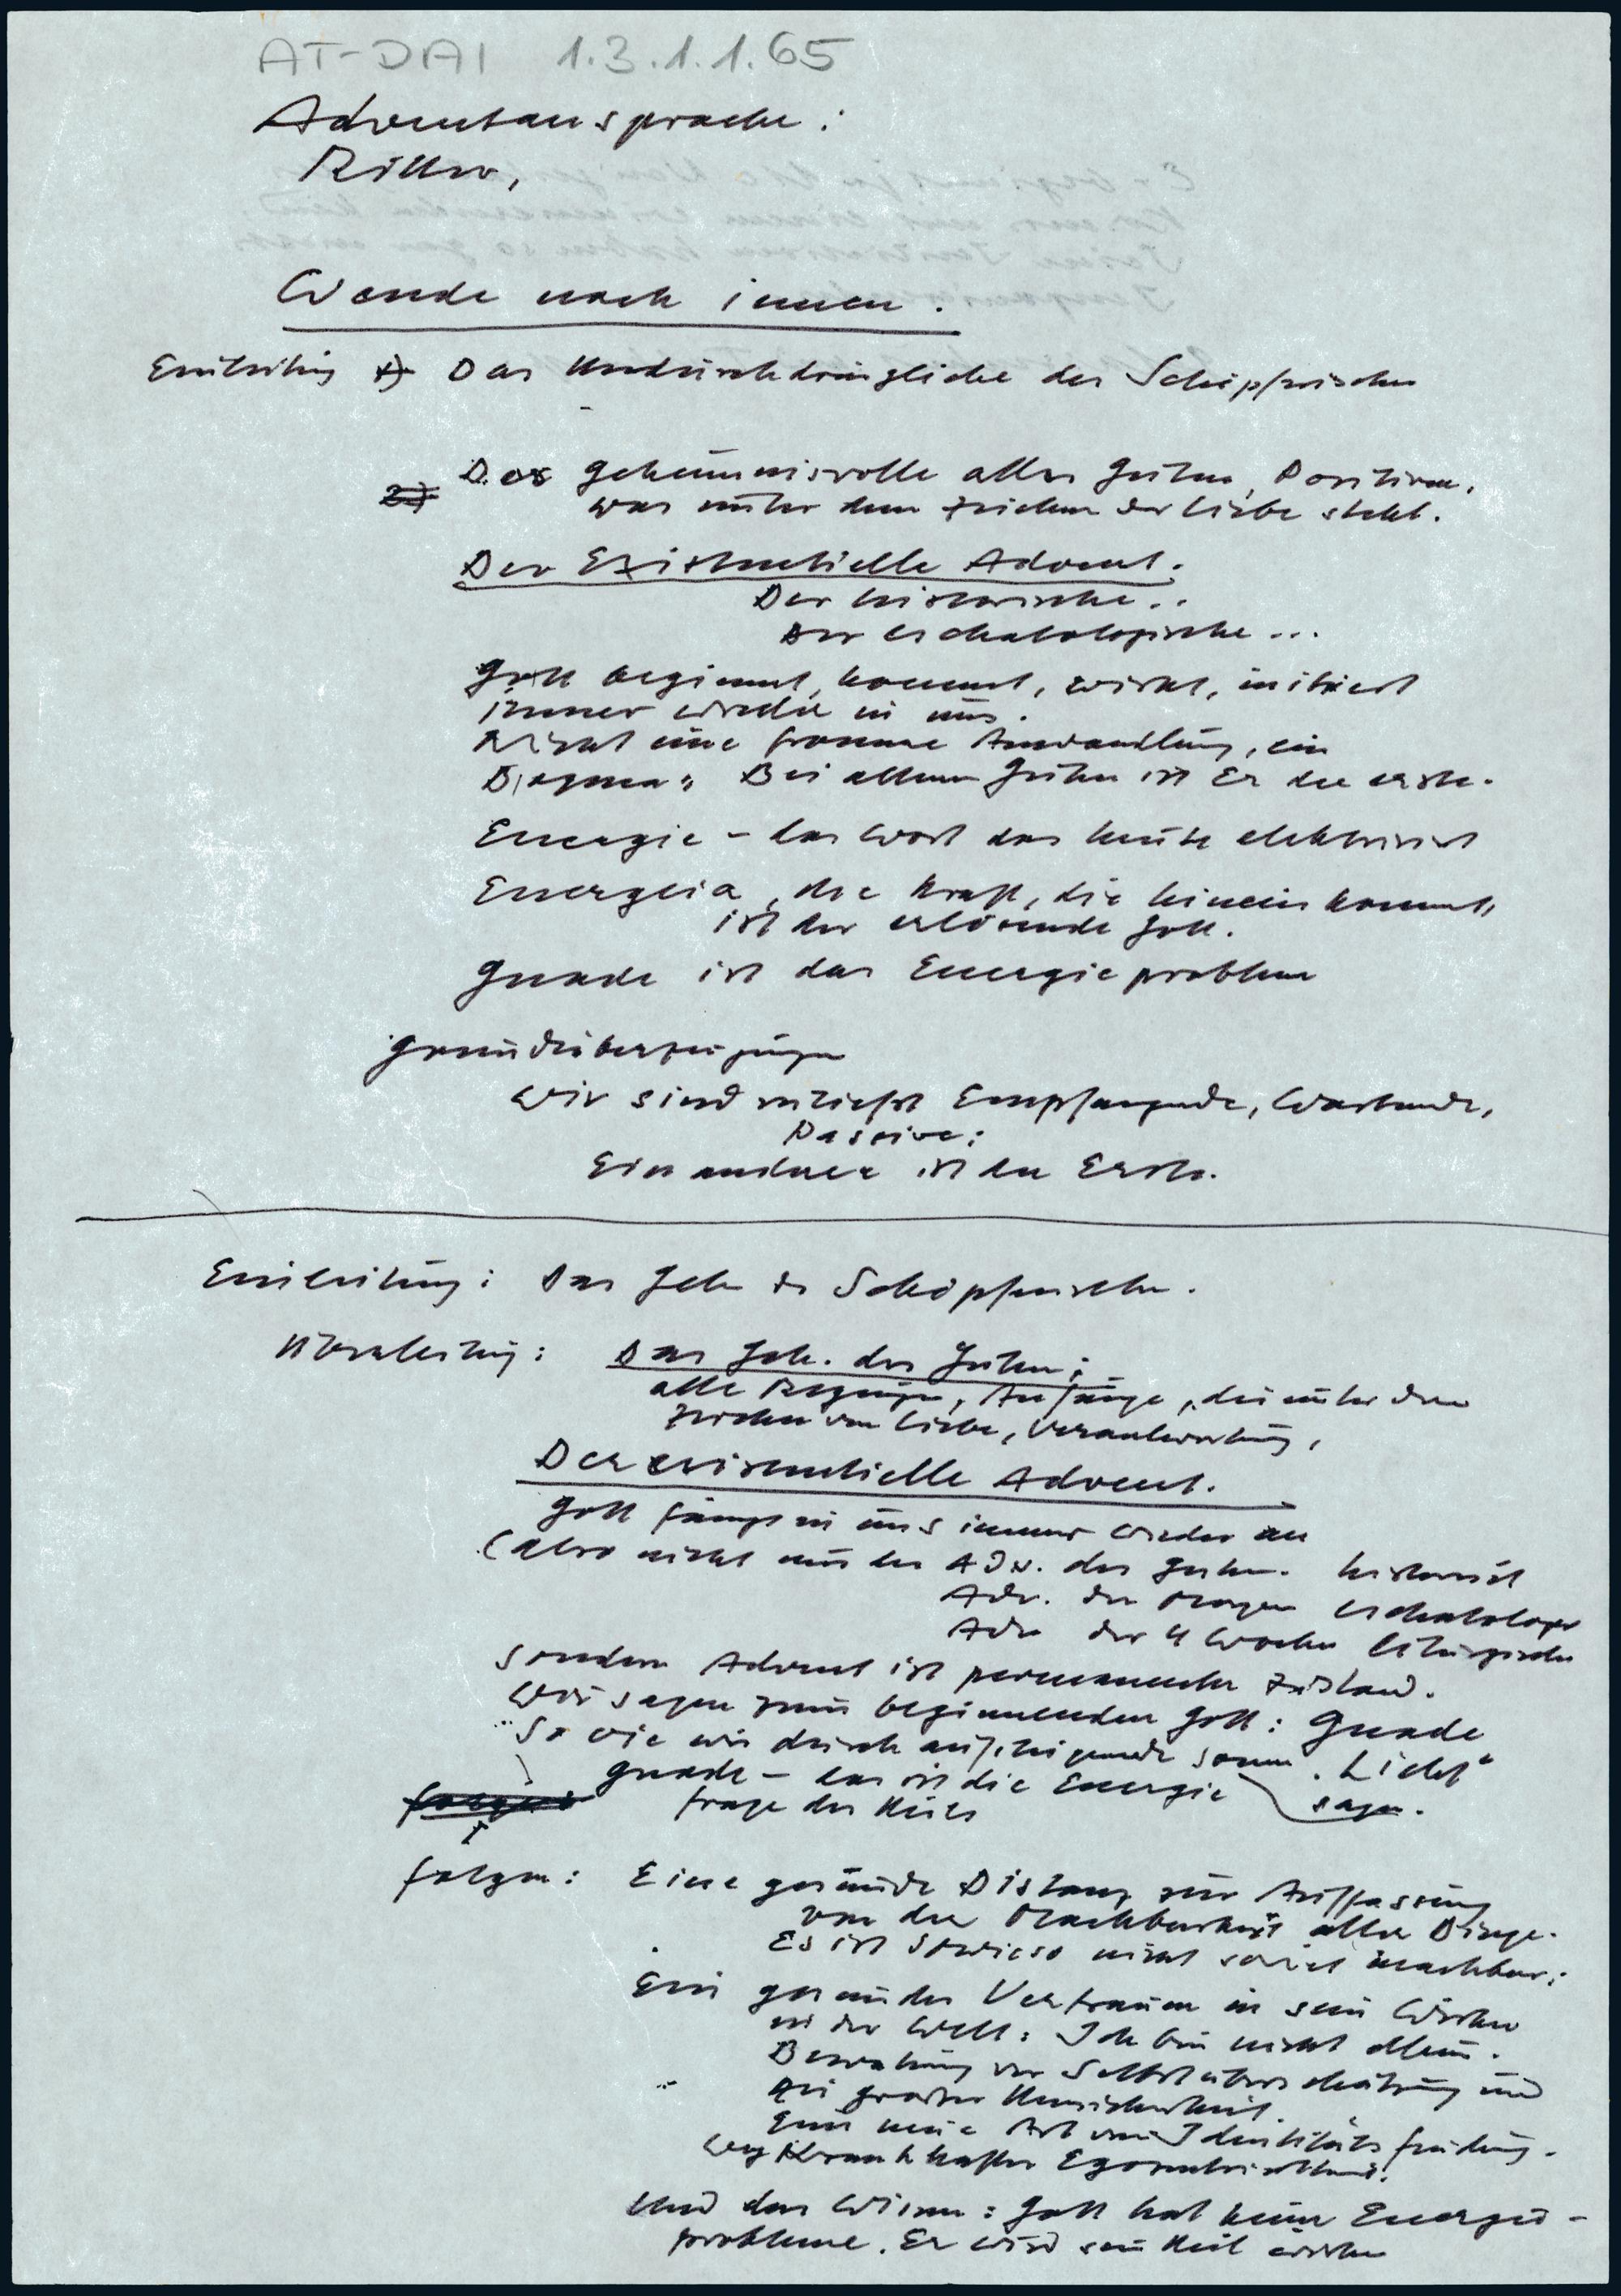 AT-DAI 1.3.1.1.65
Adventansprache:
Ritter,
Wende nach innen.
Einleitung 1) Das Undurchdringliche des Schöpferischen
2) Das geheimnisvolle alles Guten, Positiven,
was unter dem Zeichen der Liebe steht.
Der Existentielle Advent.
Der historische..
Der eschatologische...
Gott beginnt, kommt, wirkt, initiiert
immer wieder in uns.
Nicht eine fromme Anwandlung, ein
Dogma: Bei allem Guten ist Er der erste.
Energie - das Wort das heute elektrisiert
Energeia, die Kraft, die hineinkommt,
ist der erlösende Gott.
Gnade ist das Energieproblem
Grundüberzeugungen
Wir sind zutiefst Empfangende, Wartende,
Passive:
Ein anderer ist der Erste.
Einleitung: Das Geh. des Schöpferischen.
Überleitung: Das Geh. des Guten:
alle Regungen, Anfänge, die unter dem
Zeichen von Liebe, Verantwortung,
Der existentielle Advent.
Gott fängt in uns immer wieder an
(also nicht nur der Adv. des Gestern. historisch
Adv. des Morgen eschatolog
Adv. der 4 Wochen liturgische
sondern Advent ist permanenter Zustand.
Wir sagen zum beginnenden Gott: Gnade
So wie wir durch aufsteigende Sonne "Licht"
Gnade - das ist die Energie sagen.
frage des Heils
Folgen: Eine gesunde Distanz zur Auffassung
von der Machbarkeit aller Dinge.
Es ist sowieso nicht soviel machbar:
Ein gesundes Vertrauen in sein Wirken
in der Welt: Ich bin nicht allein.
Bewahrung vor Selbstüberschätzung und
großer Unsicherheit.
Eine neue Art von Identitätsfindung.
Weg krankhafter Egozentrik
Und das Wissen: Gott hat keine Energie-
probleme. Er wird sein Heil wirken